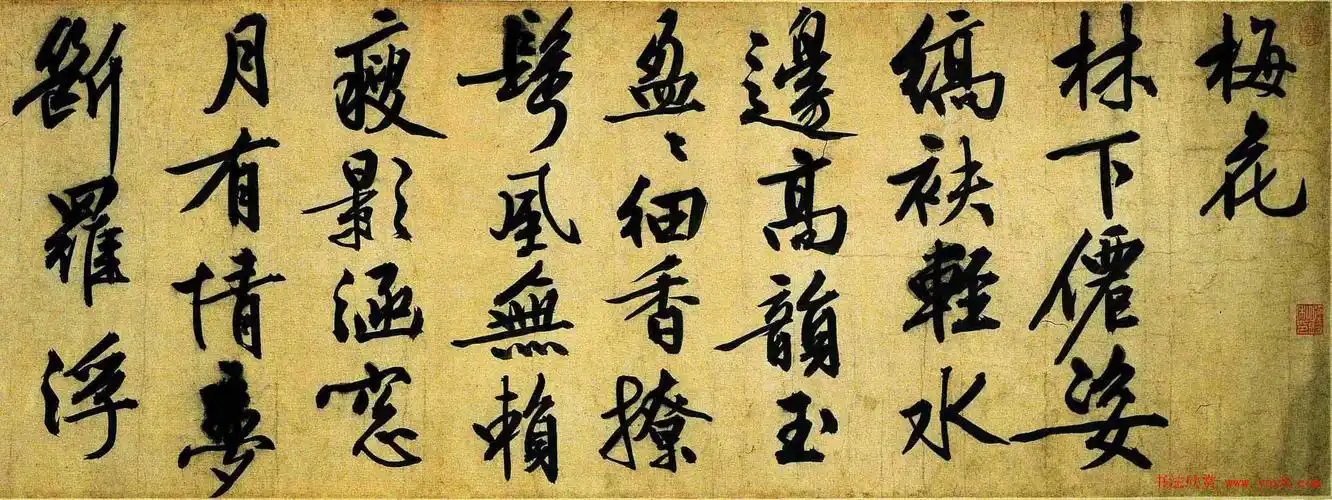 梅花
林下僊姿
縞袂輕水
邊高韻玉
盈〻細香撩
鬢風無賴
瘦影涵窓
月有情夢
斷羅浮
书法欣赏